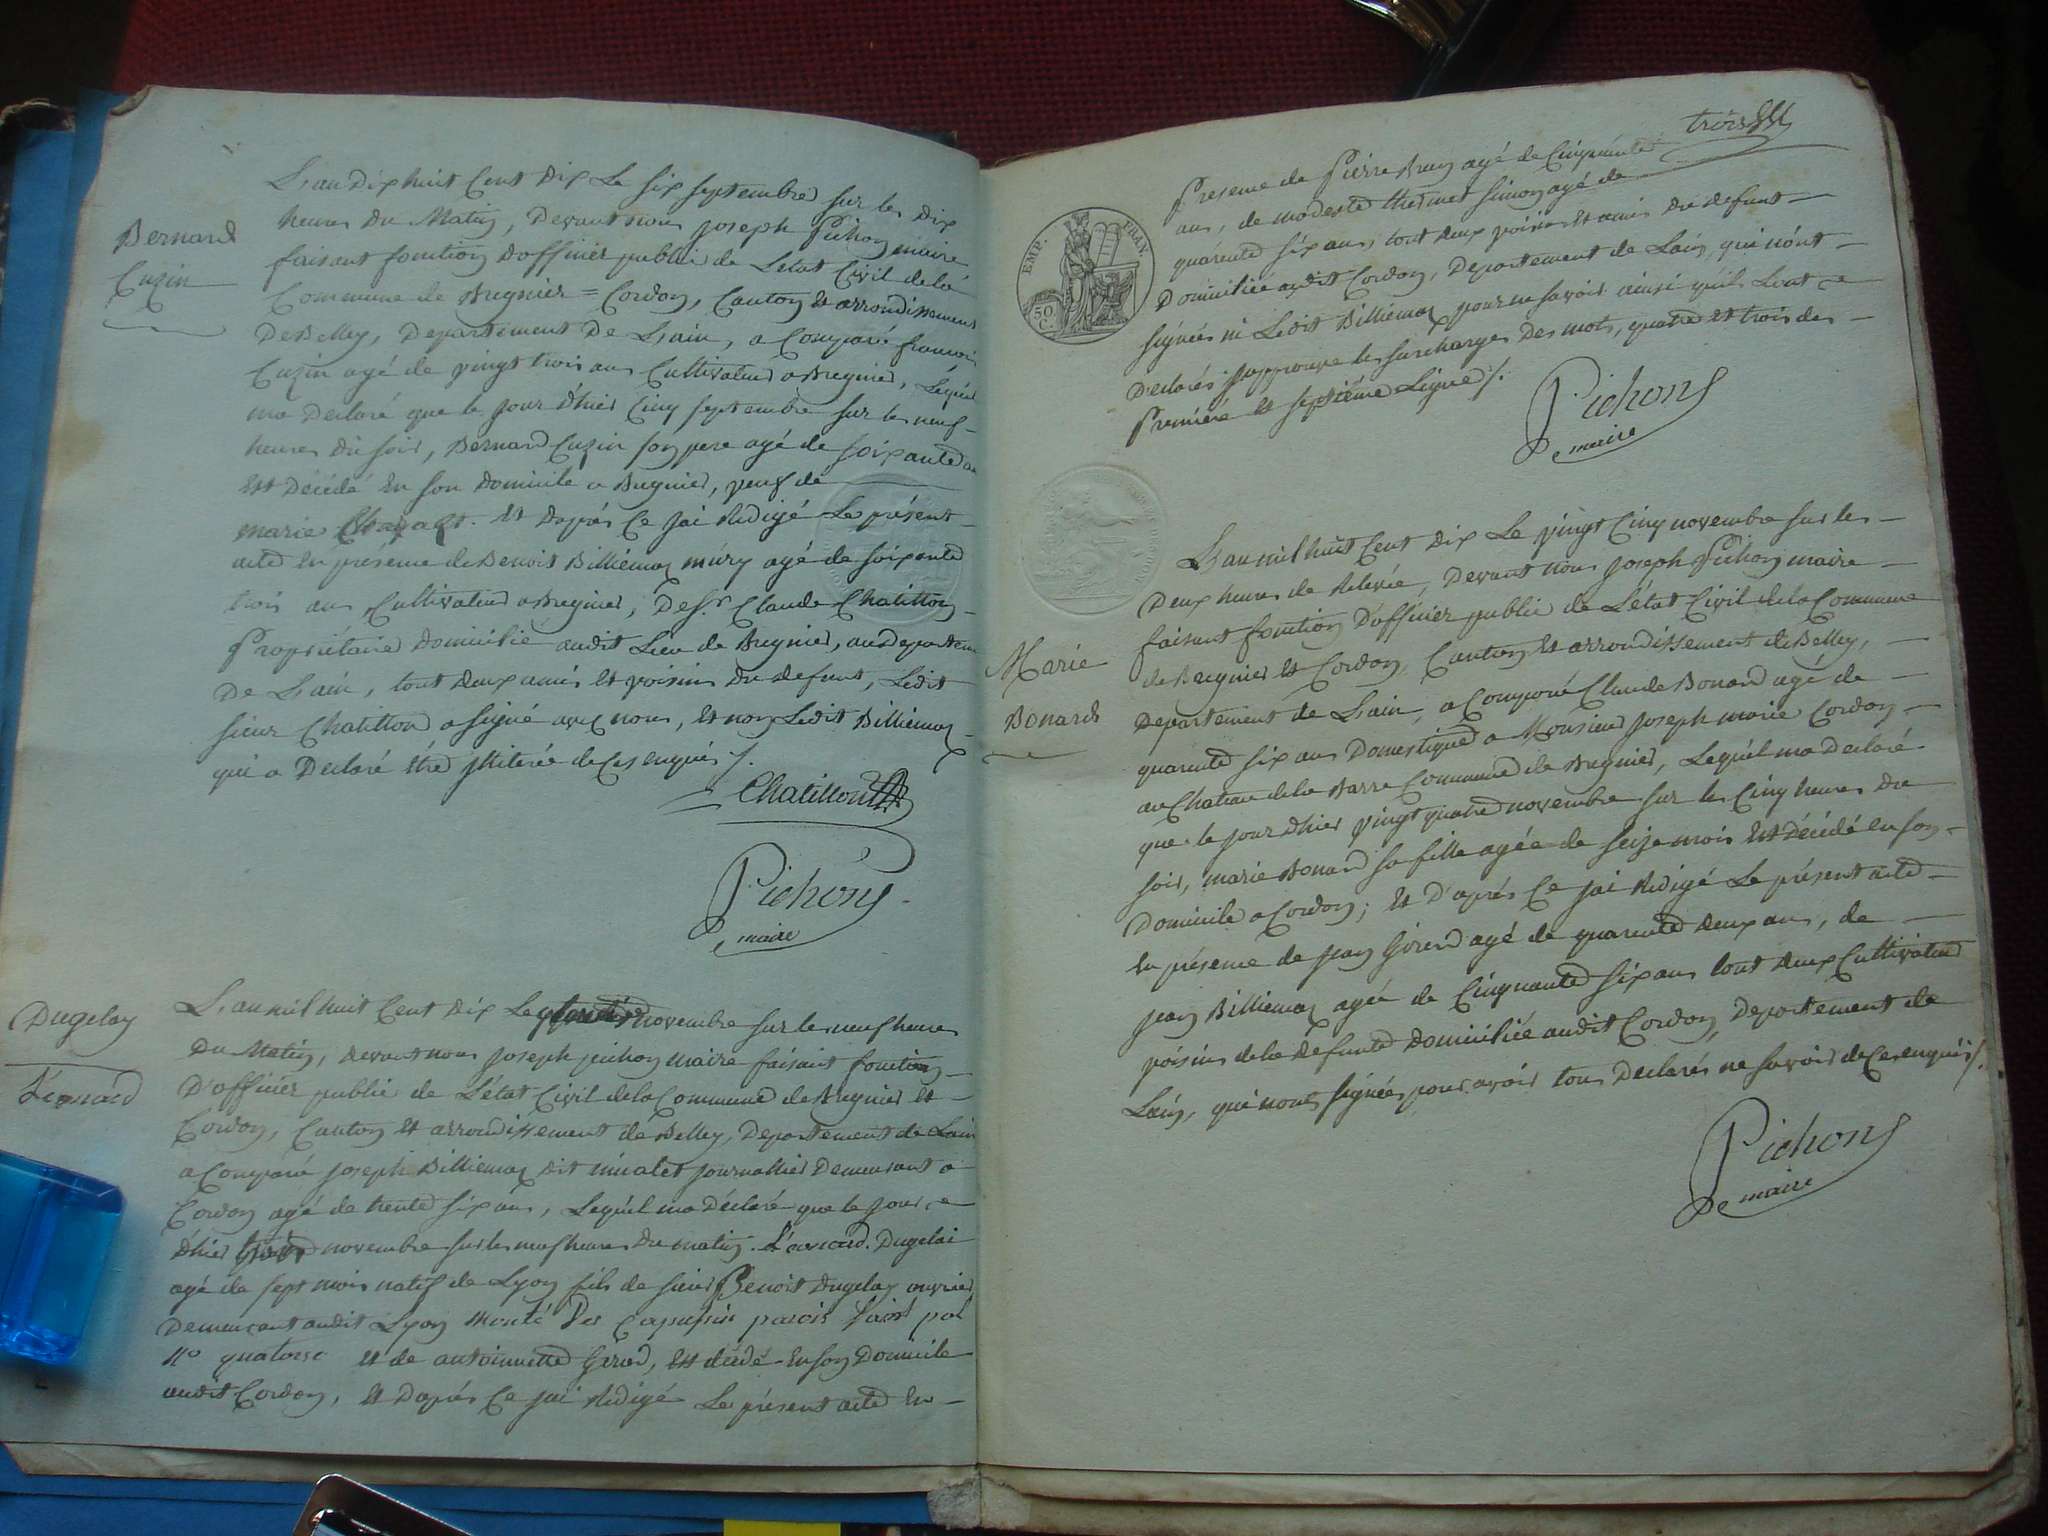 L'an Dix huit Cent Dix Le six septembre sur les dix
heures du Matin, Devant nous joseph Pichon maire
faisant fonction d'officier public de L'état Civil de la
Commune de Bregnier = Cordon, Canton et arrondissement
De Belley, Departement De L'ain, a Comparé francois
Cuzin agé de vingt trois ans Cultivateur a Bregnier, Lequel
ma Declaré que le jour d'hier Cinq septembre sur les neuf
heures du soir, Bernard Cuzin son pere agé de soixante
Est Décédé En son domicile a Bregnier, veuf de
marie Et d'aprés Ce jai Redigé Le présent
acte En présence de Benoit Billiemaz mury agé de soixante
trois ans Cultivateur a Bregnier, De Sr. Claude Chatillon
Propriétaire domicilié audit Lieu de Bregnier, au departem
De L'ain, tout deux amis et voisins du defunt, Ledit
sieur Chatillon a signé avec nous, et non Ledit Billiemaz
qui a Declaré être jlliterée de Ces enquis ./.
Bernard
Cuzin
Chatillon
Pichon
maire
Dugelay
Léonard
L'an mil huit Cent dix Le novembre sur les neuf heures
Du Matin, devant nous joseph pichon maire faisant fonction
D'officier public de L'état Civil de la Commune de Bregnier et
Cordon, Canton et arrondissement de Belley, Departement de Lain
a Comparé joseph Billiemaz dit journallier Demeurant a
Cordon agé de trente six ans, Lequel ma déclaré que le jour
d'hier novembre sur les neuf heures du matin. Léonard Dugelai
agé de sept mois natif de Lyon fils de sieur Benoit Dugelay ouvrier
Demeurant audit Lyon monté Des Capussin parois saint pol
N° quatorse et de antoinette Girod, Est décédé En son Domicile
audit Cordon, et d'aprés Ce jai Redigé Le présent acte En
trois
EMP. FRAN.
50 C.
Presence de Pierre Brun agé de Cinquante
ans, de modeste thermet simon agé de
quarente six ans, tout deux voisins et amis du defunt
Domiciliée audit Cordon, Departement de Lain, qui n'ont
signées ni Ledit Billiemaz pour ne savoir ainsi qu'ils L'ont
Declarés japprouve les surcharges des mots, quatre et trois des
Première et septième Lignes ./.
Pichon
maire
L'an mil huit Cent dix Le vingt Cinq novembre sur les
Deux heures de Relevée, Devant nous joseph Pichon maire
faisant fonction D'officier public de L'état Civil de la Commune
de Bregnier et Cordon, Canton et arrondissement de Belley,
Departement de L'ain, a Comparé Claude Bonard agé de
quarente six ans Domestique a Monsieur joseph marie Cordon
au Chateau de la Barre Commune de Bregnier, Lequel ma Declaré
que le jour d'hier vingt quatre novembre sur les Cinq heures du
soir, marie Bonard sa fille agée de seize mois Est Décédé en son
Domicile a Cordon; Et D'aprés Ce jai Redigé Le présent acte
En présence de jean Girerd agé de quarente deux ans, de
jean Billiemaz agée de Cinquante six ans tout deux Cultivateur
voisins de la defunte domiciliée audit Cordon, Departement de
Lain, qui nont signées pour avoir tous Declarés ne savoir de Ces enquis ./.
Marie
Bonard
Pichon
maire